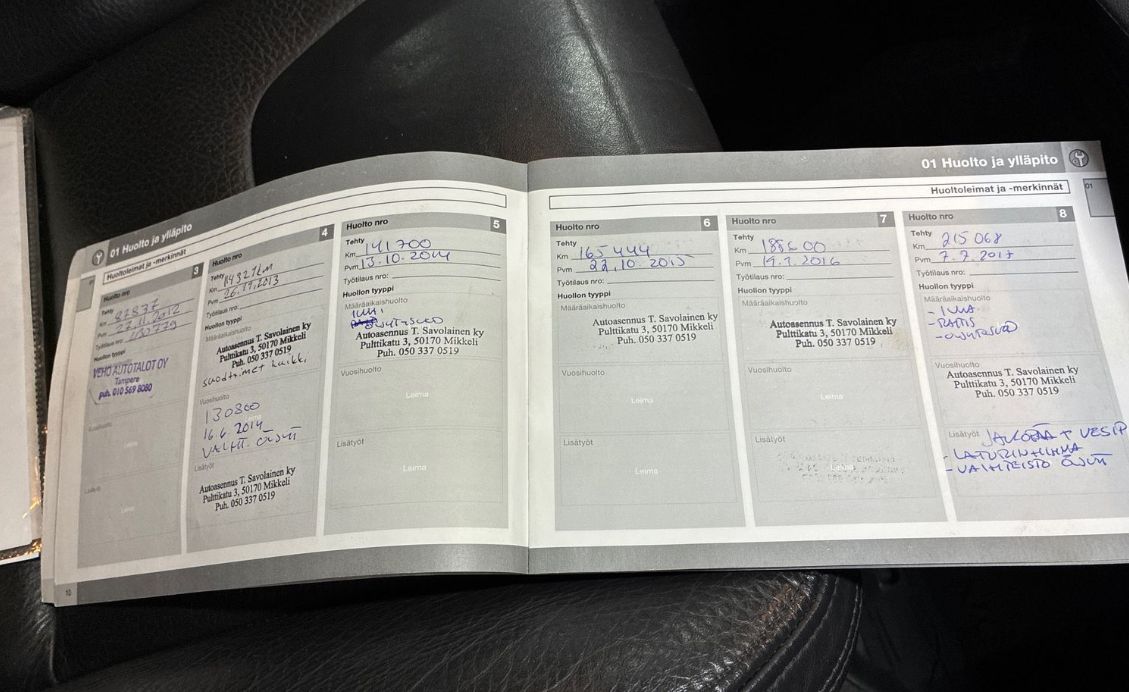 01 Huolto ja ylläpito
Huoltoleimat ja -merkinnät
3
Huolto nro
Tehty
Km 87837
Pvm 27.11.2012
Työtilaus nro:
Huollon tyyppi
VEHO AUTOTALOT OY
Tampere
puh. 010 569 8080
Vuosihuolto
Leima
Lisätyöt
Leima
10
Huolto nro 4
Tehty
Km
Pvm 26.11.2013
Työtilaus nro:
Huollon tyyppi
Autoasennus T. Savolainen ky
Pulttikatu 3, 50170 Mikkeli
Puh. 050 337 0519
suodattimet kaikki
Vuosihuolto
130800
16.6.2014
Lisätyöt
Autoasennus T. Savolainen ky
Pulttikatu 3, 50170 Mikkeli
Puh. 050 337 0519
Huolto nro 5
Tehty
Km 141 700
Pvm 13.10.2014
Työtilaus nro:
Huollon tyyppi
Määräaikaishuolto
ILMA
Autoasennus T. Savolainen ky
Pulttikatu 3, 50170 Mikkeli
Puh. 050 337 0519
Vuosihuolto
Leima
Lisätyöt
Leima
01 Huolto ja ylläpito
Huoltoleimat ja -merkinnät
01
Huolto nro 6
Tehty
Km 165 444
Pvm 22.10.2015
Työtilaus nro:
Huollon tyyppi
Määräaikaishuolto
Autoasennus T. Savolainen ky
Pulttikatu 3, 50170 Mikkeli
Puh. 050 337 0519
Vuosihuolto
Leima
Lisätyöt
Leima
Huolto nro 7
Tehty
Km 185600
Pvm 19.3.2016
Työtilaus nro:
Huollon tyyppi
Määräaikaishuolto
Autoasennus T. Savolainen ky
Pulttikatu 3, 50170 Mikkeli
Puh. 050 337 0519
Vuosihuolto
Leima
Lisätyöt
Leima
Huolto nro 8
Tehty
Km 215 068
Pvm 7.2.2017
Työtilaus nro:
Huollon tyyppi
Määräaikaishuolto
- ILMA
- RAITIS
- ÖLJYTASUO
Vuosihuolto
Autoasennus T. Savolainen ky
Pulttikatu 3, 50170 Mikkeli
Puh. 050 337 0519
Lisätyöt JAKOPÄÄ + VESIP
- LATURINHIHNA
- VAIHTEISTO ÖLJYT